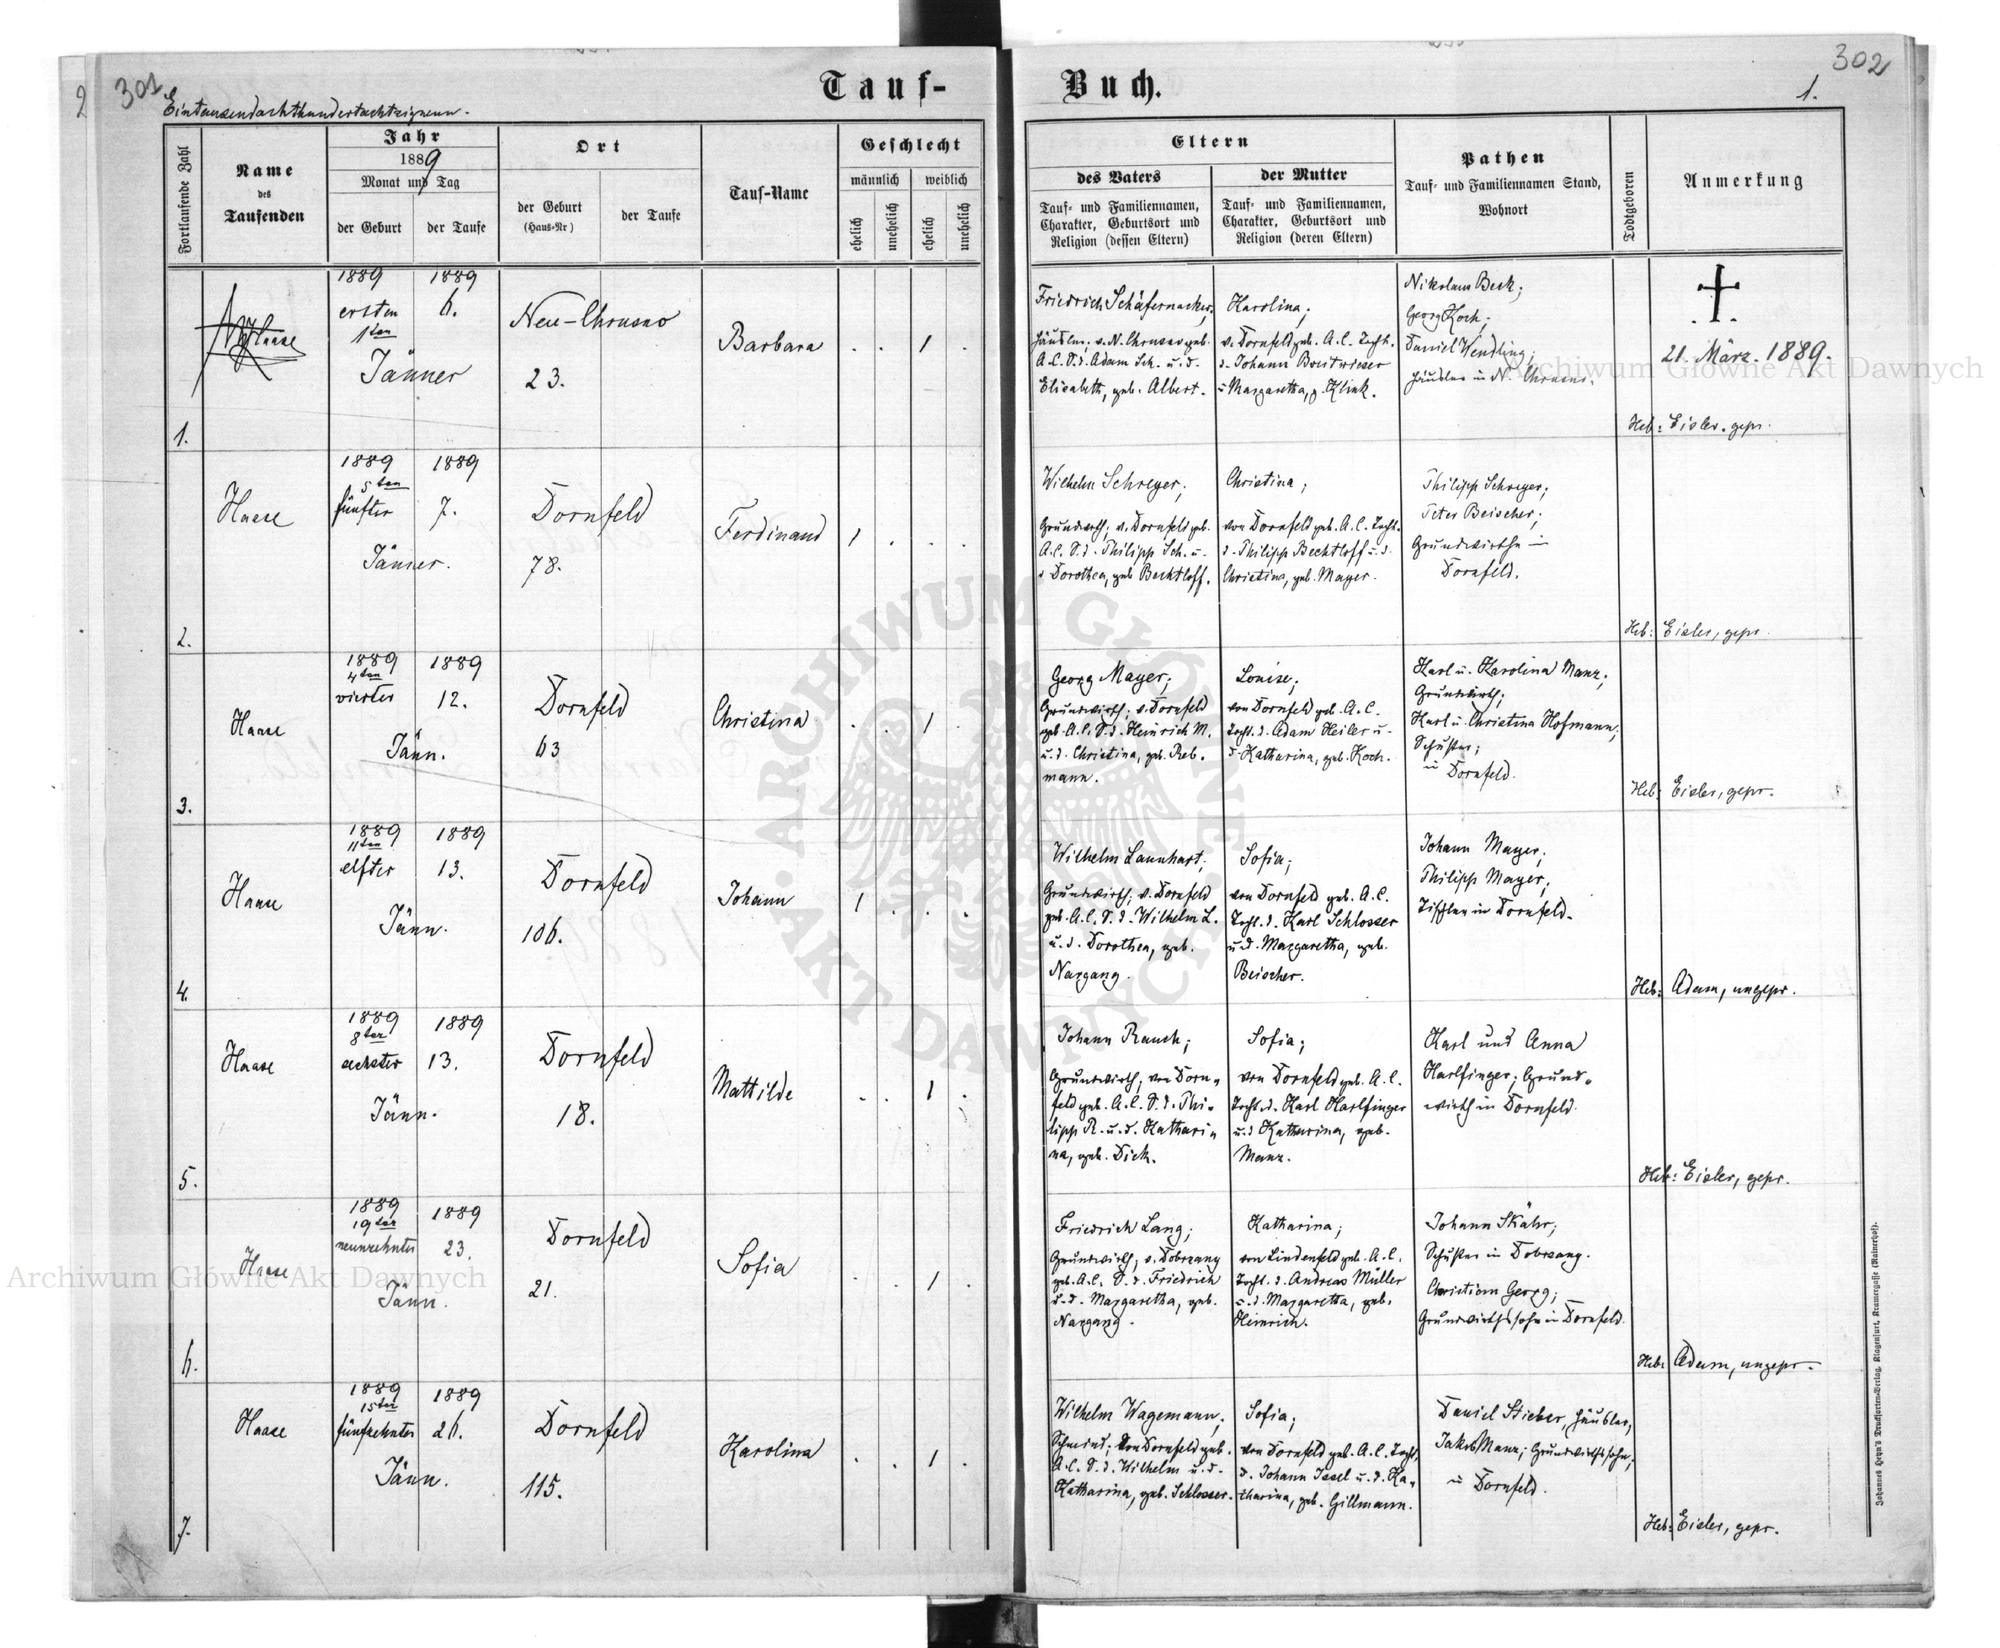 2
301
302
Tauf-
Buch.
1.
Eintausendachthundertachtzigneun.
Fortlaufende Zahl
Name
des
Taufenden
Jahr
1889
Monat und Tag
der Geburt
der Taufe
Ort
der Geburt
(Haus-Nr)
der Taufe
Tauf-Name
Geschlecht
männlich
weiblich
ehelich
unehelich
ehelich
unehelich
Eltern
des Vaters
Tauf- und Familiennamen,
Charakter, Geburtsort und
Religion (dessen Eltern)
der Mutter
Tauf- und Familiennamen,
Charakter, Geburtsort und
Religion (deren Eltern)
Pathen
Tauf- und Familiennamen Stand,
Wohnort
Todtgeboren
Anmerkung
1.
Haase
1889
ersten
1ten
Jänner
1889
6.
Neu-Chrusno
23.
Barbara
. . 1 .
Friedrich Schäfernacker;
Häusler. v. N. Chrusno geb.
A.C. S. d. Adam Sch. u. d.
Elisabeth, geb. Albert.
Karolina;
v. Dornfeld geb. A.C. Tocht.
d. Johann Breitwieser
u Margaretha, g. Klink.
Nikolaus Beck;
Georg Koch;
Daniel Wendling;
Häusler in N. Chrusno.
21. März. 1889.
Heb: Eisler. gepr.
2.
Haase
1889
5ten
fünfter
Jänner.
1889
7.
Dornfeld
78.
Ferdinand
1 . . .
Wilhelm Schreyer;
Grundwirth; v. Dornfeld geb.
A.C. S. d. Philipp Sch. u.
d Dorothea, geb Bechtloff.
Christina;
von Dornfeld geb. A.C. Tocht.
d. Philipp Bechtloff u. d.
Christina, geb. Mayer.
Philipp Schreyer;
Peter Beischer;
Grundwirthe in
Dornfeld.
Heb: Eisler, gepr.
3.
Haase
1889
4ten
vierter
Jänn.
1889
12.
Dornfeld
63
Christina
. . 1 .
Georg Mayer;
Grundwirth; v. Dornfeld
geb. A.C. S. d. Heinrich M.
u. d. Christina, geb. Reb-
mann.
Louise;
von Dornfeld geb. A.C.
Tocht. d. Adam Heiler u.
d. Katharina, geb. Koch.
Karl u. Karolina Manz;
Grundwirth;
Karl u. Christina Hofmann,
Schuster;
in Dornfeld.
Heb: Eisler, gepr.
4.
Haase
1889
11ten
elfter
Jänn.
1889
13.
Dornfeld
106.
Johann
1 . . .
Wilhelm Lannhart;
Grundwirth; v. Dornfeld
geb. A.C. S. d. Wilhelm L.
u. d. Dorothea, geb.
Nargang.
Sofia;
von Dornfeld geb. A.C.
Tocht. d. Karl Schlosser
u. d. Margaretha, geb.
Beischer.
Johann Mayer;
Philipp Mayer;
Tischler in Dornfeld.
Heb: Adam, ungepr.
5.
Haase
1889
8ter
achter
Jänn.
1889
13.
Dornfeld
18.
Mathilde
. . 1 .
Johann Rauch;
Grundwirth; von Dorn-
feld geb. A.C. S. d. Phi-
lipp R. u. d. Kathari-
na, geb. Dick.
Sofia;
von Dornfeld geb. A.C.
Tocht. d. Karl Harlfinger
u. d Katharina, geb.
Manz.
Karl und Anna
Harlfinger; Grund-
wirth in Dornfeld.
Heb: Eisler, gepr.
6.
Haase
1889
19ter
neunzehnter
Jänn.
1889
23.
Dornfeld
21.
Sofia
. . 1 .
Friedrich Lang;
Grundwirth, v. Dobrzany
geb. A.C. S. d. Friedrich
u. d. Margaretha, geb.
Nargang.
Katharina;
von Lindenfeld geb. A.C.
Tocht. d. Andreas Müller
u. d. Margaretha, geb.
Heinrich.
Johann Skähr;
Schuster in Dobrzany.
Christian Georg;
Grundwirthssohn in Dornfeld.
Heb: Adam, ungepr.
7.
Haase
1889
15ter
fünfzehnter
Jänn.
1889
26.
Dornfeld
115.
Karolina
. . 1 .
Wilhelm Wagemann;
Schmied; von Dornfeld geb.
A.C. S. d. Wilhelm u. d.
Katharina, geb. Schlosser.
Sofia;
von Dornfeld geb. A.C. Tocht.
d. Johann Issel u. d. Ka-
tharina, geb. Gillmann.
Daniel Stieber, Häusler,
Jakob Manz; Grundwirthssohn,
in Dornfeld.
Heb: Eisler, gepr.
Johannes Heyn's Drucksorten-Verlag, Klagenfurt, Kramergasse (Rainerhof).
Archiwum Główne Akt Dawnych
Archiwum Główne Akt Dawnych
ARCHIWUM GŁÓWNE • AKT DAWNYCH •